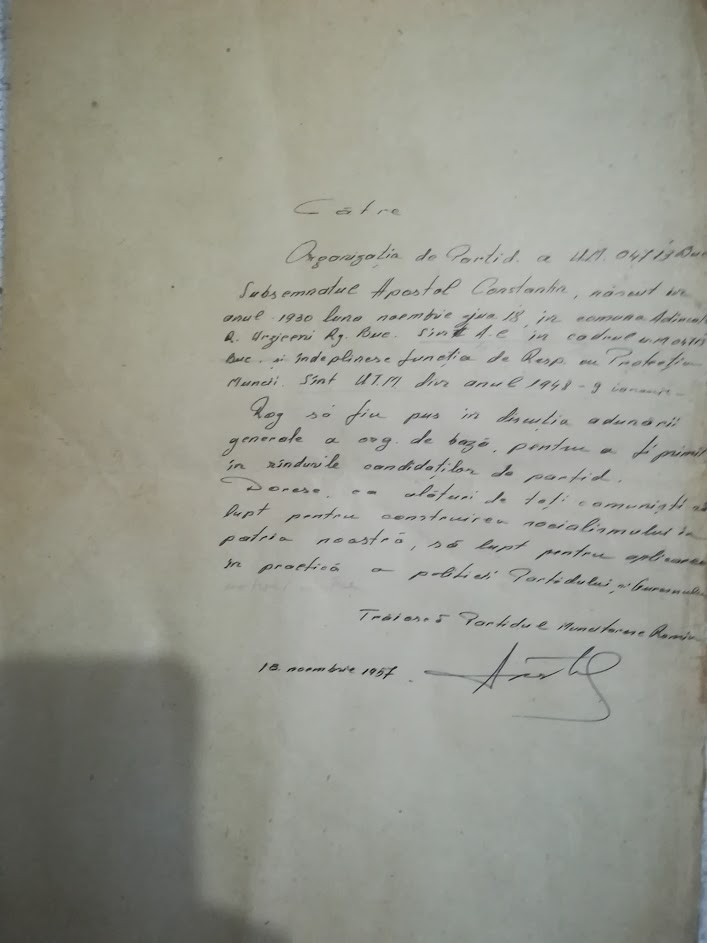 Către
Organizația de Partid a U.M. 04719 Buc
Subsemnatul Apostol Constantin, născut în
anul 1930 luna noembrie ziua 18, în comuna Adincata
R. Urziceni Rg. Buc. Sînt A.C în cadrul U.M 04719
Buc. și îndeplinesc funcția de Resp. cu Protecția
Muncii. Sînt U.T.M din anul 1948 - 9 ianuarie -
Rog să fiu pus în discuția adunării
generale a org. de bază, pentru a fi primit
în rîndurile candidaților de partid.
Doresc, ca alături de toți comuniști să
lupt pentru construirea socialismului în
patria noastră, să lupt pentru aplicarea
în practică a politicii Partidului și Guvernului
Trăiască Partidul Muncitoresc Romîn
18 noembrie 1957.